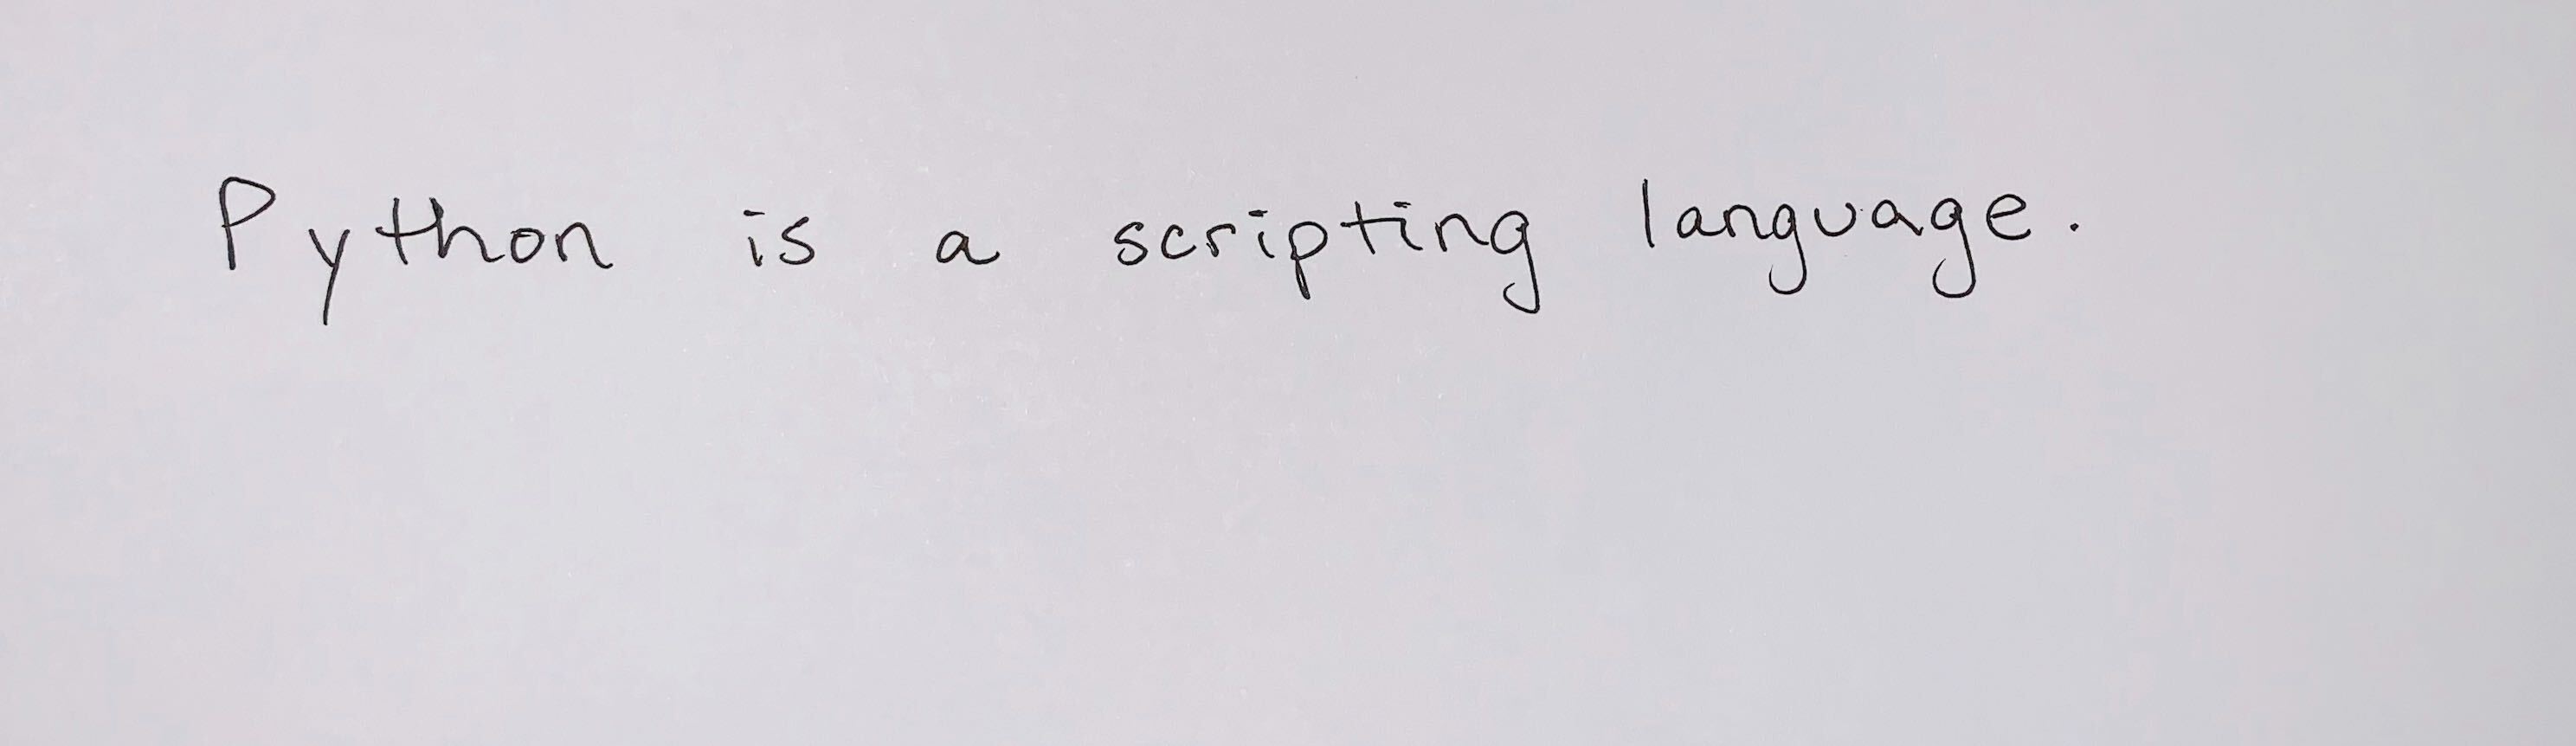 Python is a scripting language.